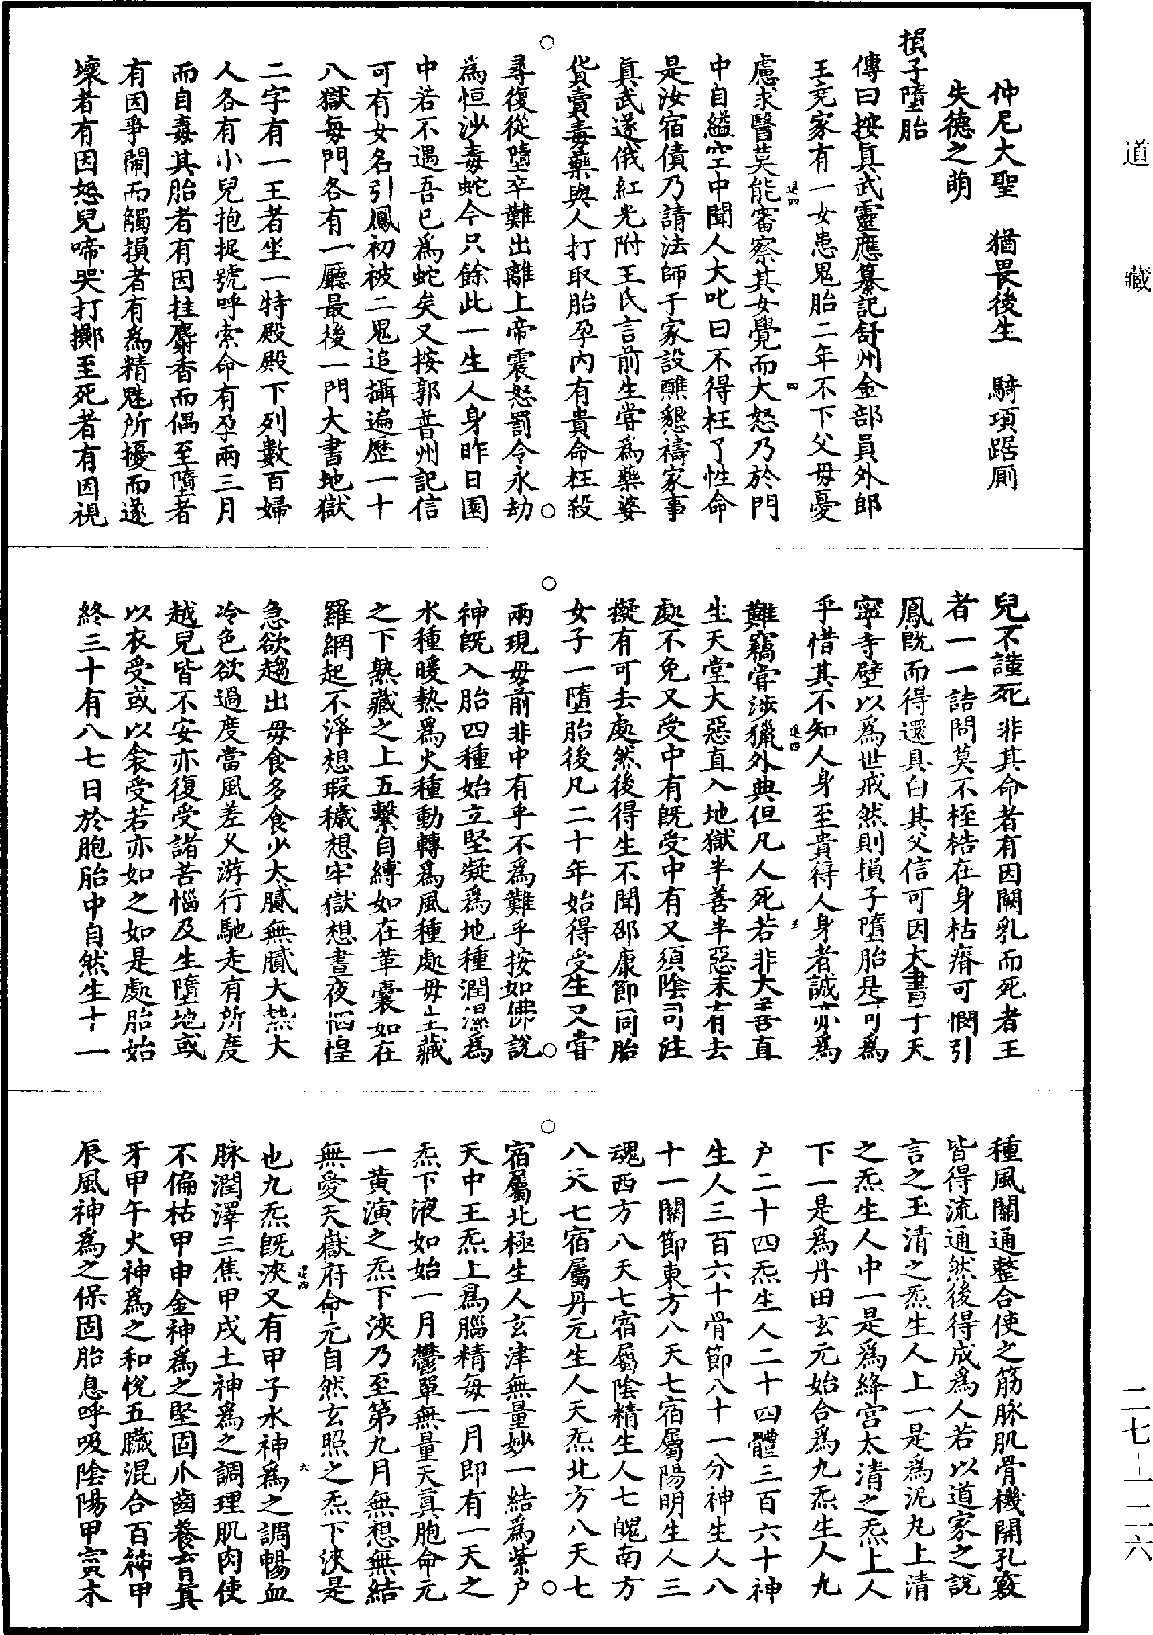 道藏
仲尼大聖　猶畏後生　騎項踞厠
失德之萌
損子墮胎
傳曰按真武靈應纂記舒州金部員外郎
王兖家有一女患鬼胎二年不下父母憂
慮求醫莫能審察其女覺而大怒乃於門
中自縊空中聞人大叱曰不得枉了性命
是汝宿債乃請法師于家設醮懇禱家事
真武遂俄紅光附王氏言前生嘗為藥婆
貨賣毒藥與人打取胎孕内有貴命枉殺
尋復從墮卒難出離上帝震怒罰令永劫
為恒沙毒蛇今只餘此一生人身昨日園
中若不遇吾已為蛇矣又按郭普州記信
可有女名引鳳初被二鬼追攝遍歷一十
八獄每門各有一廳最後一門大書地獄
二字有一王者坐一特殿殿下列數百婦
人各有小兒抱捉號呼索命有孕兩三月
而自毒其胎者有因拄麝香而偶至墮者
有因爭鬧而觸損者有為精魅所擾而遂
壞者有因怒兒啼哭打擲至死者有因視
兒不謹死非其命者有因闕乳而死者王
者一一詰問莫不桎梏在身枯瘠可憫引
鳳既而得還具白其父信可因大書于天
寧寺壁以為世戒然則損子墮胎是可為
乎惜其不知人身至貴待人身者誠亦為
難竊嘗涉獵外典但凡人死若非大善直
生天堂大惡直入地獄半善半惡未有去
處不免又受中有既受中有又須陰司注
擬有可去處然後得生不聞邵康節同胎
女子一墮胎後凡二十年始得受生又嘗
兩現母前非中有乎不為難乎按如佛說
神既入胎四種始立堅凝為地種潤濕為
水種暖熱為火種動轉為風種處母生藏
之下熟藏之上五繫自縛如在革囊如在
羅網起不淨想瑕穢想牢獄想晝夜恓惶
急欲趨出母食多食少太膩無膩大熱大
冷色欲過度當風差久游行馳走有所度
越兒皆不安亦復受諸苦惱及生墮地或
以衣受或以衾受若亦如之如是處胎始
終三十有八七日於胞胎中自然生十一
種風關通整合使之筋脉肌骨機關孔竅
皆得流通然後得成為人若以道家之說
言之玉清之炁生人上一是為泥丸上清
之炁生人中一是為絳宮太清之炁上人
下一是為丹田玄元始合為九炁生人九
户二十四炁生人二十四體三百六十神
生人三百六十骨節八十一分神生人八
十一關節東方八天七宿屬陽明生人三
魂西方八天七宿屬陰精生人七魄南方
八天七宿屬丹元生人天炁北方八天七
宿屬北極生人玄津無量妙一結為紫户
天中王炁上為腦精每一月即有一天之
炁下液如始一月鬱單無量天真胞命元
一黄演之炁下浹乃至第九月無想無結
無愛天嶽府命元自然玄照之炁下浹是
也九炁既浹又有甲子水神為之調暢血
脉潤澤三焦甲戌土神為之調理肌肉使
不偏枯甲申金神為之堅固爪齒養育真
牙甲午火神為之和悅五臟混合百神甲
辰風神為之保固胎息呼吸陰陽甲寅木
二七-一二六